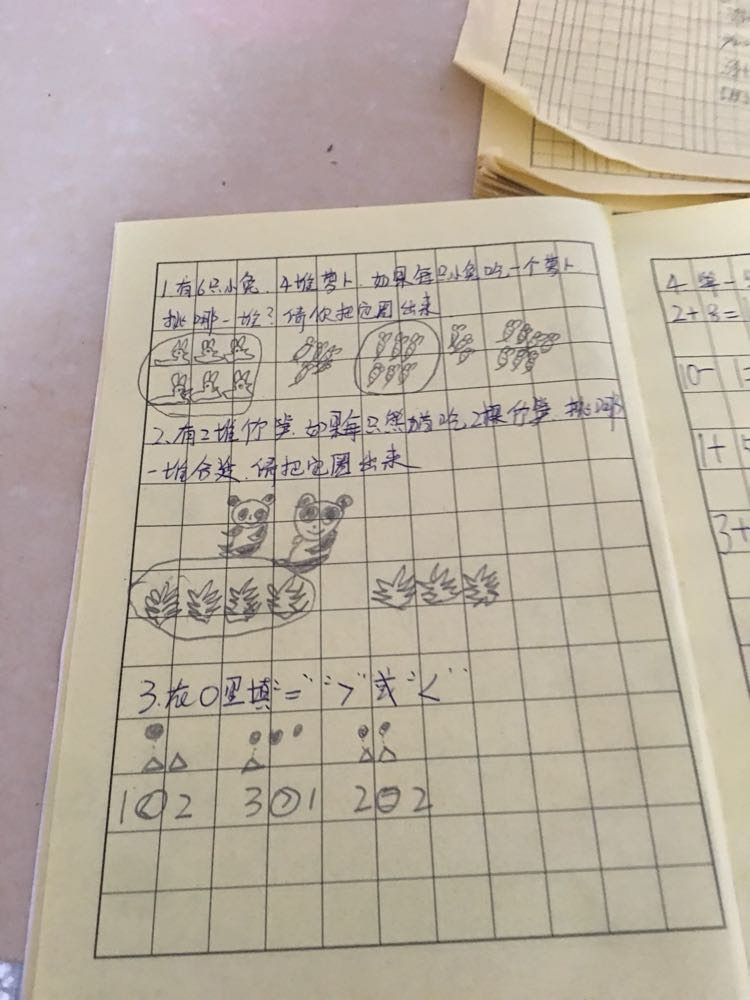 1.有6只小兔.4堆萝卜.如果每只小兔吃一个萝卜
挑哪一堆?请你把它圈出来
2.有2堆竹笋.如果每只熊猫吃2棵竹笋.挑哪
一堆合适.请把它圈出来
3.在○里填"=" ">"或"<"
1<2 3>1 2=2
2+3=
10-
1+
3+